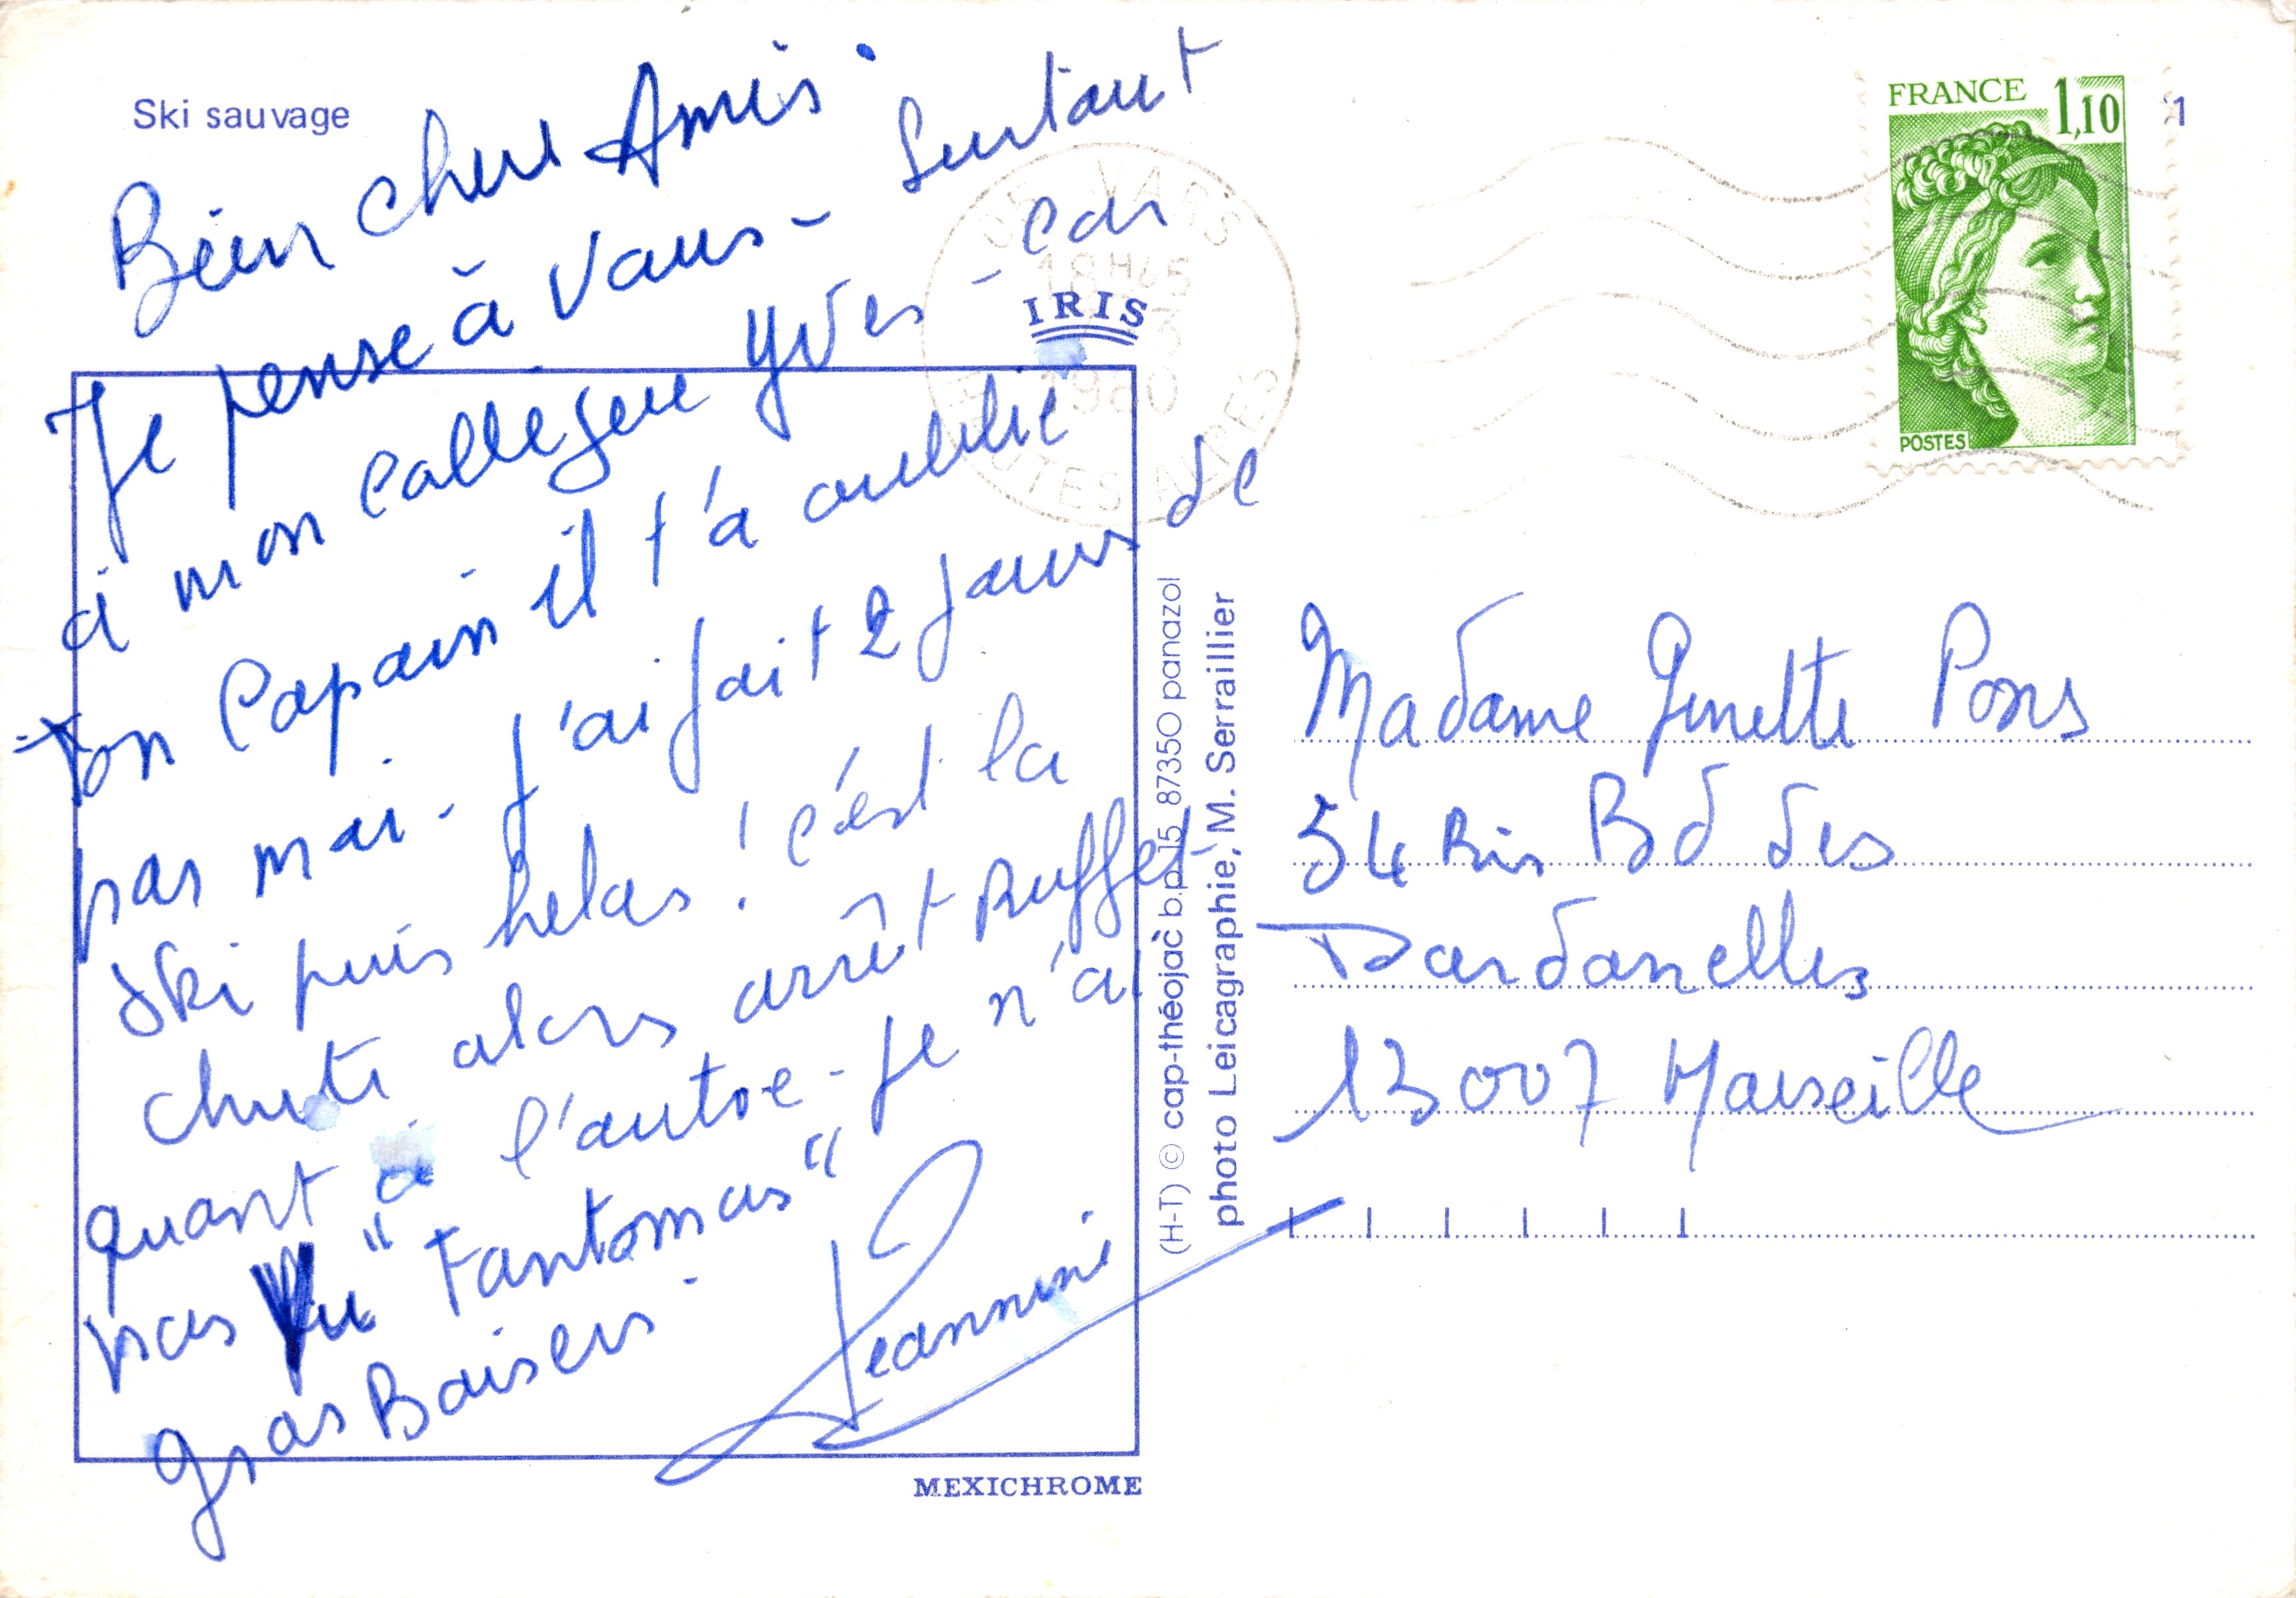 Ski sauvage
Bien chers Amis.
Je pense à Vous - Surtout
à mon collègue Yves - car
ton Copain il t'a oublié
pas moi - J'ai fait 2 jours de
Ski puis helas ! c'est la
chute alors arrêt Buffet
quant à l'autre - Je n'ai
pas Vu "Fantomas"
Gros Baisers.
Jeannine
IRIS
MEXICHROME
(H-T) © cap-théojac b.p.15 87350 panazol
photo Leicagraphie, M. Serraillier
FRANCE 1,10
POSTES
DE VARS
18H45
3
1980
HAUTES ALPES
Madame Ginette Pons
54 Bis Bd des
Dardanelles
13007 Marseille